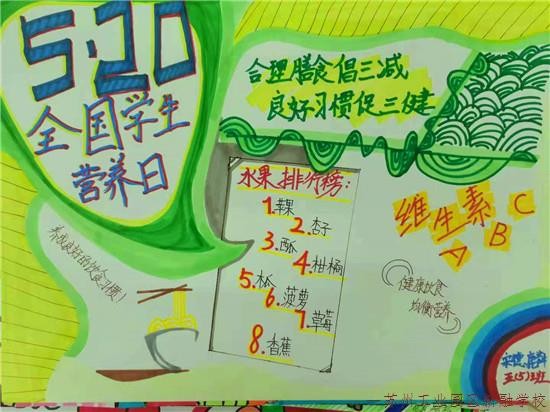 5·20
全国学生
营养日
合理膳食倡三减
良好习惯促三健
水果排行榜:
1.棵
2.杏子
3.酥
4.柑橘
5.枛
6.菠萝
7.草莓
8.香蕉
维生素C
A
B
养成良好的饮食习惯!
健康饮食
均衡营养
五(5)班
苏州工业园区翰融学校